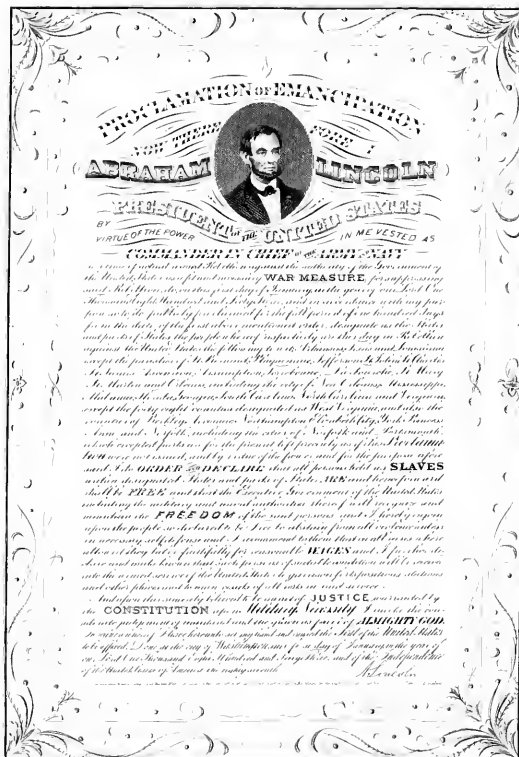 PROCLAMATION OF EMANCIPATION
NOW THERE FORE I
ABRAHAM LINCOLN
PRESIDENT OF THE UNITED STATES
BY VIRTUE OF THE POWER IN ME VESTED AS
COMMANDER IN CHIEF OF THE ARMY & NAVY
in time of actual armed Rebellion against the authority of the Government of
the United States WAR MEASURE for suppressing
said Rebellion, do, on this first day of January, in the year of our Lord One
Thousand eight Hundred and Sixty three, and in accordance with my pur-
pose so to do, publicly proclaimed for the full period of one hundred days
from the date of the first above mentioned order, designate as the States
and parts of States the people whereof respectively are this day in Rebellion
against the United States the following to wit, Arkansas, Texas and Louisiana
except the parishes of St Bernard, Plaquemines, Jefferson, St John, St Charles
St James, Ascension, Assumption, Terrebonne, La Fourche, St Mary
St Martin and Orleans, including the city of New Orleans, Mississippi
Alabama, Florida, Georgia, South Carolina, North Carolina and Virginia,
except the forty eight counties designated as West Virginia, and also the
counties of Berkley, Accomac, Northampton, Elizabeth City, York, Princess
Ann and Norfolk, including the cities of Norfolk and Portsmouth
which excepted parts are for the present left precisely as if this Proclama-
tion were not issued, and by virtue of the power and for the purpose afore-
said, I do ORDER AND DECLARE that all persons held as SLAVES
within designated States and parts of States ARE and henceforward
shall be FREE and that the Executive Government of the United States
including the military and naval authorities thereof will recognize and
maintain the FREEDOM of the said persons and I hereby enjoin
upon the people so declared to be free to abstain from all violence unless
in necessary self defense and I recommend to them that in all cases where
allowed they labor faithfully for reasonable WAGES and I further de-
clare and make known that such persons of suitable condition will be received
into the armed service of the United States to garrison forts, positions, stations
and other places and to man vessels of all sorts in said service
And upon this sincerely believed to be an act of JUSTICE warranted by
the CONSTITUTION upon Military Necessity I invoke the con-
siderate judgement of mankind and the gracious favor of ALMIGHTY GOD.
In witness whereof I have hereunto set my hand and caused the Seal of the United States
to be affixed. Done at the city of Washington, this first day of January, in the year of
our Lord One Thousand Eight Hundred and Sixty Three, and of the Independence
of the United States of America the eighty seventh
A. Lincoln